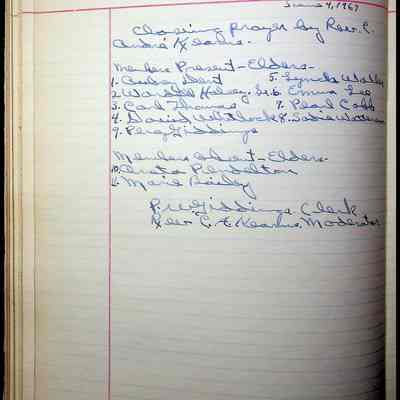 June 4, 1967
Closing prayer by Rev. C.
André Kearns.
Members Present - Elders -
1. Dent 5. Lynda
2. Wardell Kelsey, Sr. 6. Emma Lee
3. Carl Thomas 7. Pearl Cobb
4. David Whitlock 8. Sadie Watterson
9. Percy Giddings
Members absent - Elders -
10. Pendelton
11. Marie Bailey
P. W. Giddings Clerk
Rev. C. A. Kearns, Moderator